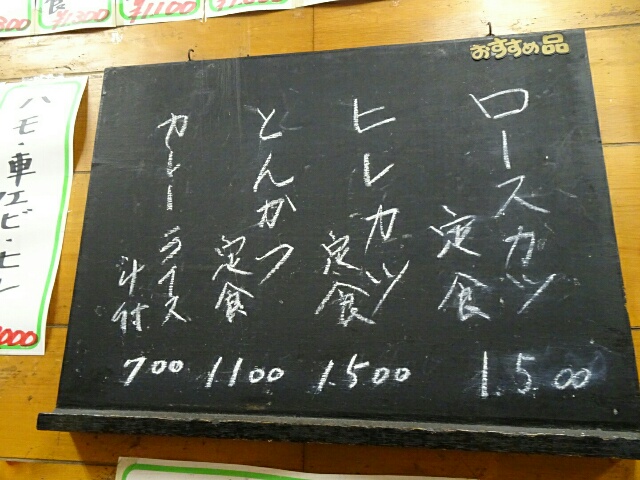 おすすめ品
ロースカツ
定食
1500
ヒレカツ
定食
1500
とんかつ
定食
1100
カレーライス
汁付
700
ハモ・車エビ・ヒレ
000
食
1300
1100